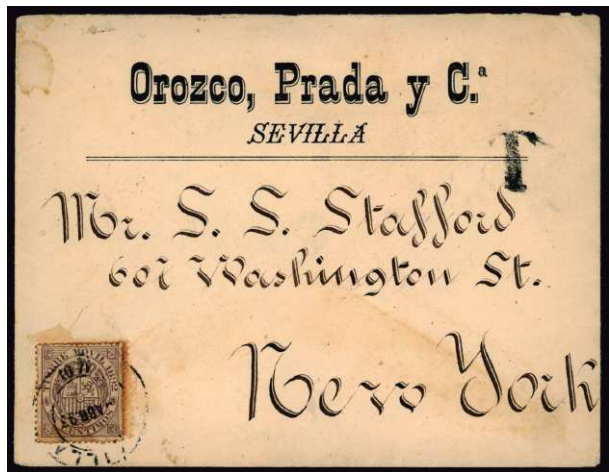 Orozco, Prada y C.ª
SEVILLA
T
Mr. S. S. Stafford
607 Washington St.
New York